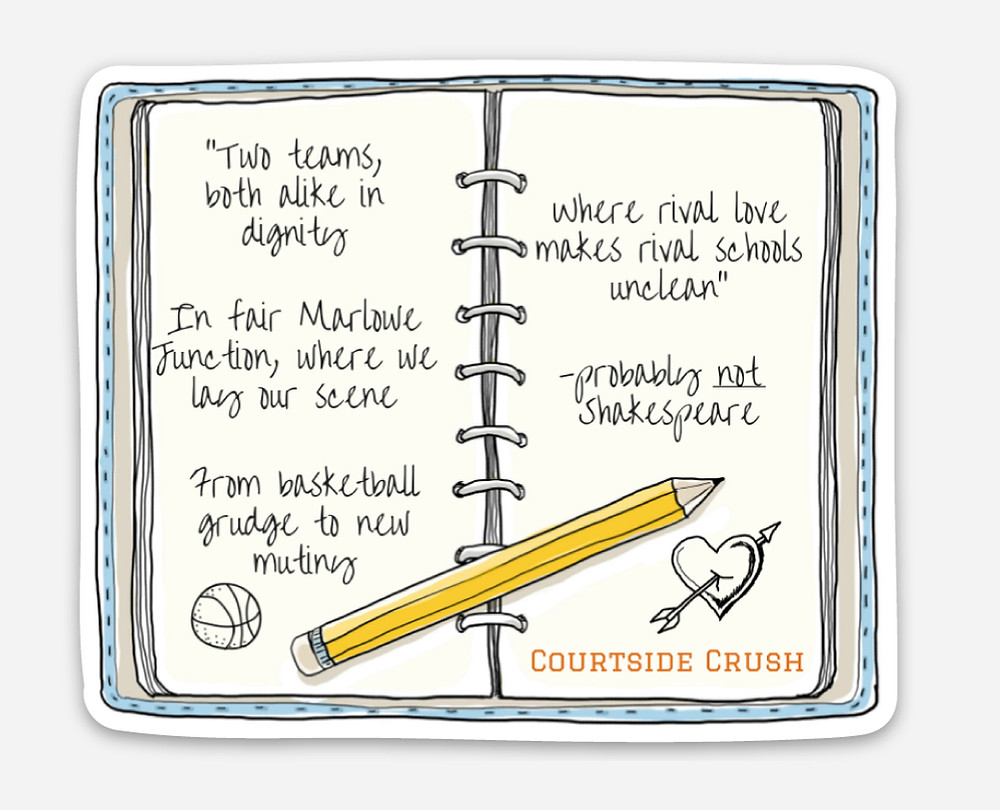 "Two teams,
both alike in
dignity
In fair Marlowe
Junction, where we
lay our scene
From basketball
grudge to new
mutiny
where rival love
makes rival schools
unclean"
-probably not
Shakespeare
Courtside Crush